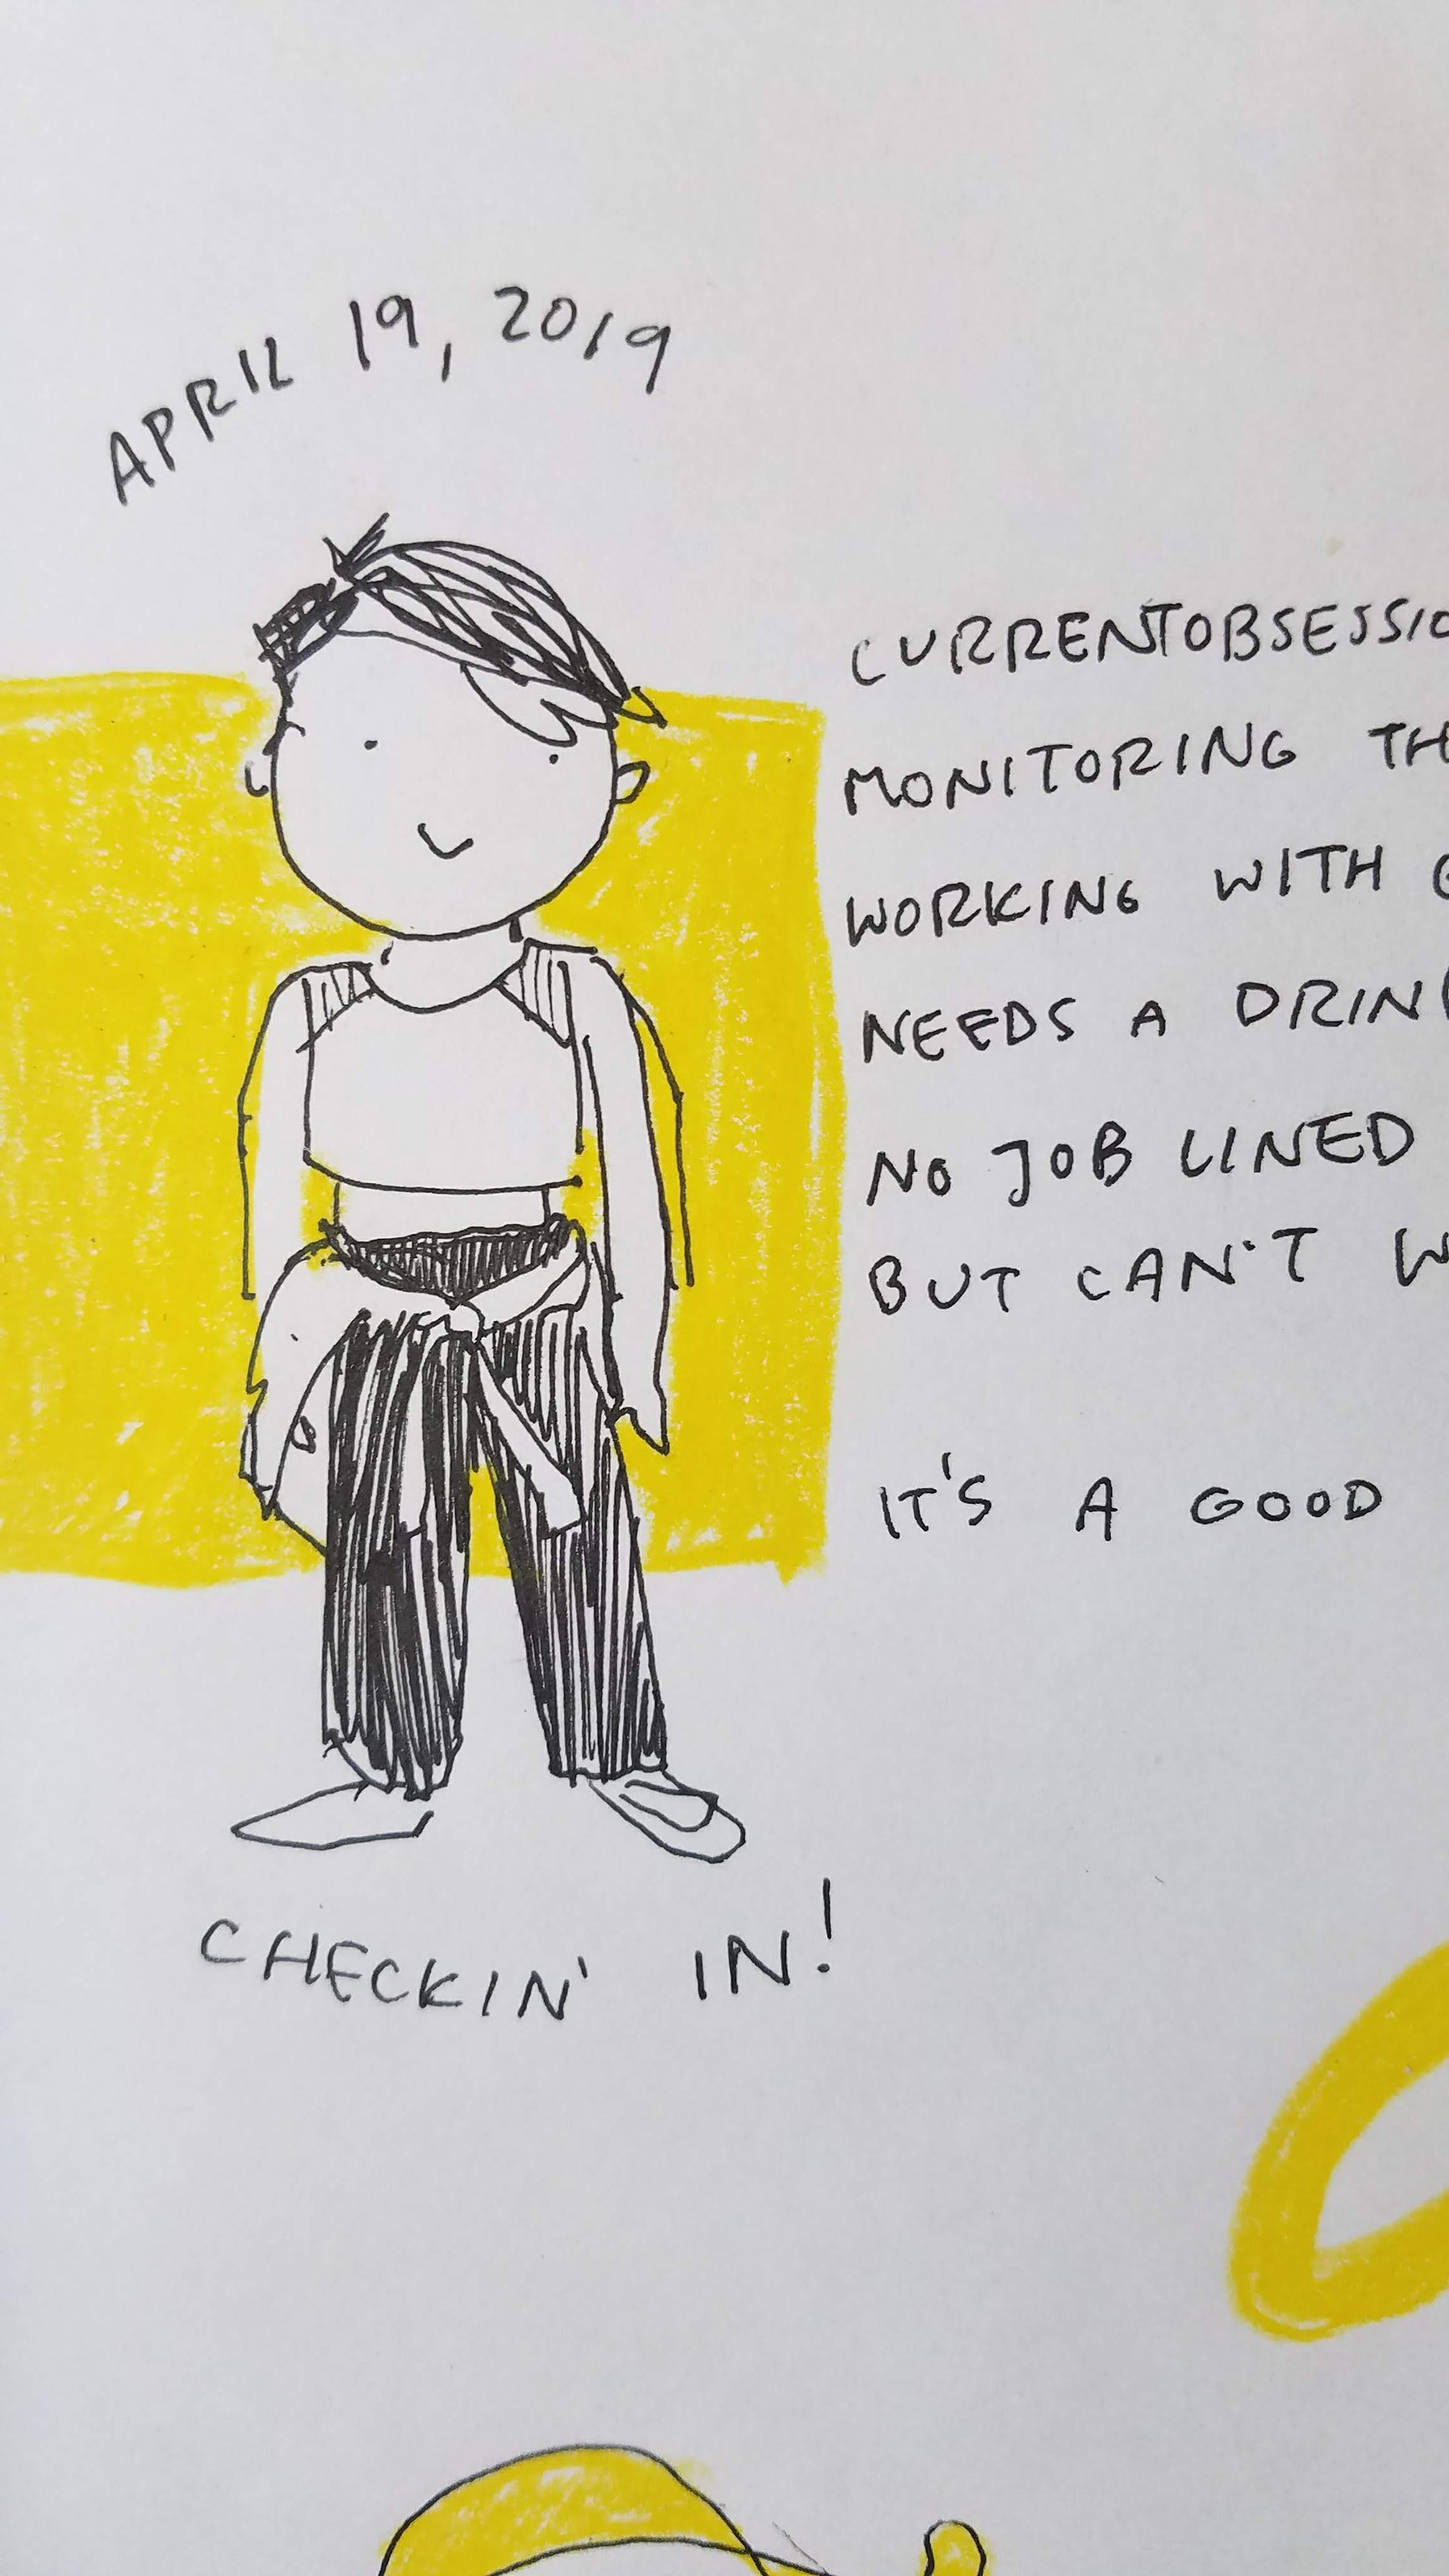 APRIL 19, 2019
CURRENTOBSESSIO
MONITORING TH
WORKING WITH
NEEDS A DRIN
NO JOB LINED
BUT CAN'T W
IT'S A GOOD
CHECKIN' IN!